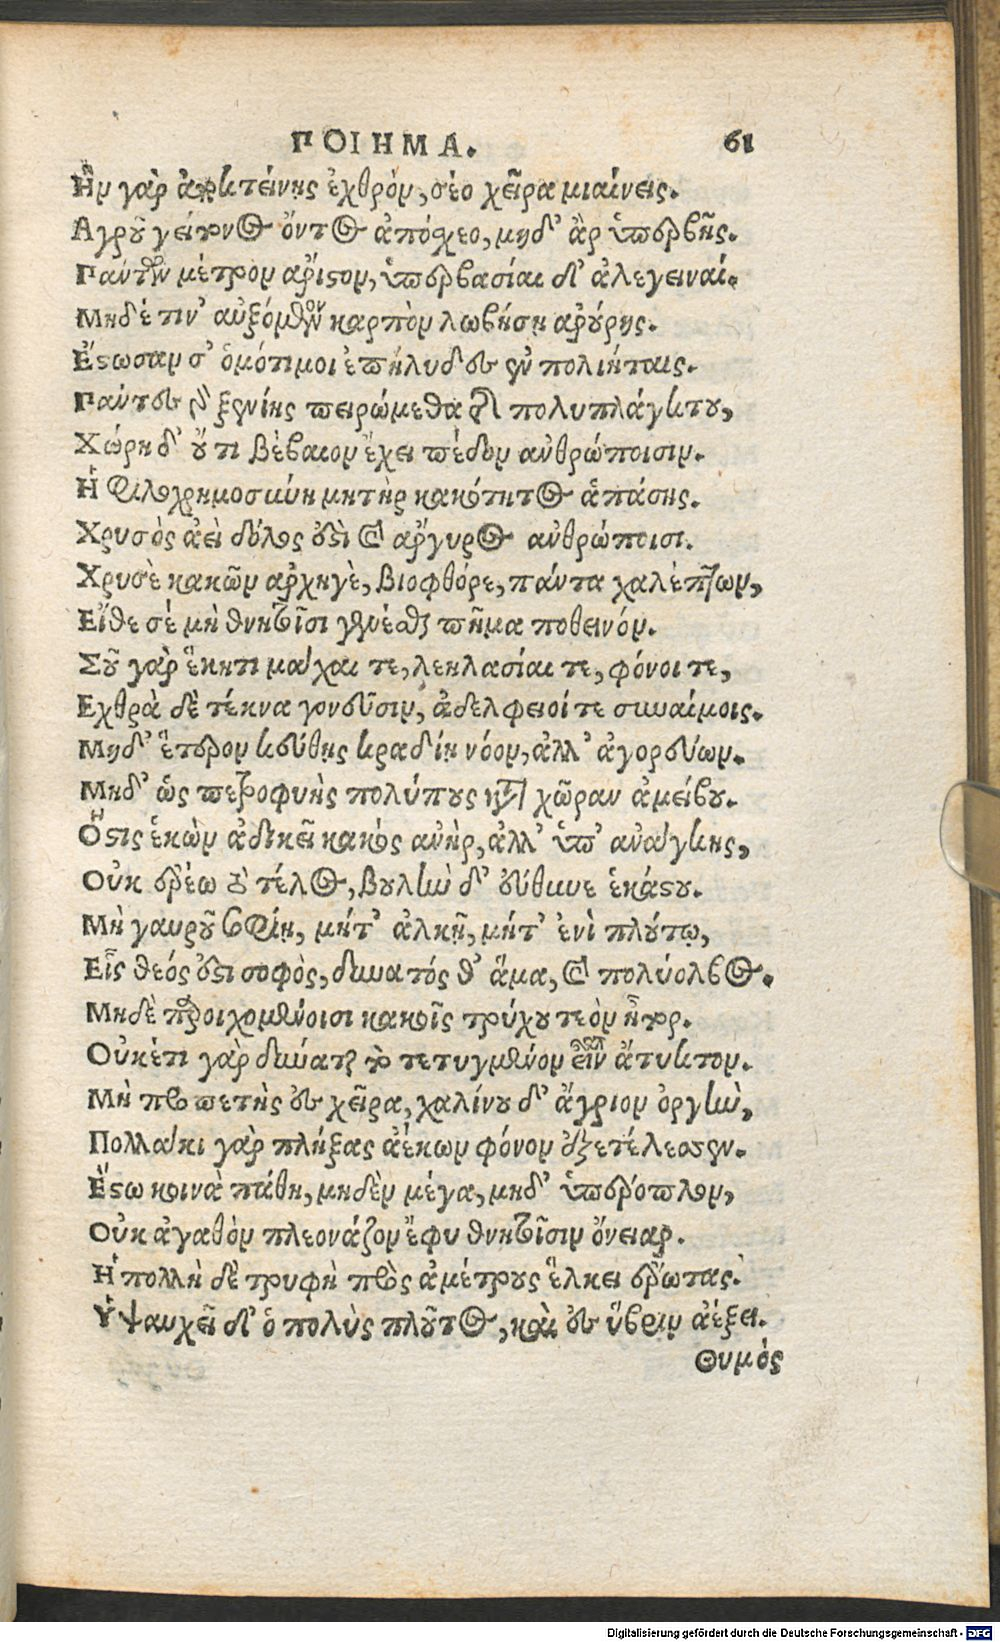 ΠΟΙΗΜΑ. 61
Ἢν γὰρ ἀποκτείνῃς ἐχθρὸν, σέο χεῖρα μιαίνεις.
Αγροῦ γείτονος ὄντος ἀπόσχεο, μηδ' ἂρ ὑπερβῇς.
Πάντων μέτρον ἄριστον, ὑπερβασίαι δ' ἀλεγειναί.
Μηδέ τιν' αὐξόμενον καρπὸν λωβήσῃ ἀρούρης.
Ἔστωσαν σ' ὁμότιμοι ἐπήλυδες ἐν πολιήταις.
Πάντες γὰρ ξενίης πειρώμεθα τῆς πολυπλάγκτου,
Χώρη δ' οὔ τι βέβαιον ἔχει πέδον ἀνθρώποισιν.
Ἡ φιλοχρημοσύνη μητὴρ κακότητος ἁπάσης.
Χρυσὸς ἀεὶ δόλος ἐστὶ καὶ ἄργυρος ἀνθρώποισι.
Χρυσὲ κακῶν ἀρχηγὲ, βιοφθόρε, πάντα χαλέπτων,
Εἴθε σέ μὴ θνητοῖσι γενέσθαι πῆμα ποθεινόν.
Σοῦ γὰρ ἕκητι μάχαι τε, λεηλασίαι τε, φόνοι τε,
Εχθρὰ δὲ τέκνα γονεῦσιν, ἀδελφειοί τε συναίμοις.
Μηδ' ἕτερον κεύθῃς κραδίῃ νόον, ἀλλ' ἀγορεύων.
Μηδ' ὡς πετροφυὴς πολύπους κατὰ χῶραν ἀμείβου.
Ὅστις ἑκὼν ἀδικεῖ κακὸς ἀνὴρ, ἀλλ' ὑπ' ἀνάγκης,
Οὐκ ἐρέω τὸ τέλος, βουλὴν δ' εὔθυνε ἑκάστου.
Μὴ γαυροῦ σοφίῃ, μήτ' ἀλκῇ, μήτ' ἐνὶ πλούτῳ,
Εἷς θεός ἐστι σοφὸς, δυνατός θ' ἅμα, καὶ πολύολβος.
Μηδὲ παροιχομένοισι κακοῖς τρύχου τεὸν ἦτορ.
Οὐκέτι γὰρ δύναται τὸ τετυγμένον εἶναι ἄτυκτον.
Μὴ προπετὴς ἐς χεῖρα, χαλίνου δ' ἄγριον ὀργὴν,
Πολλάκι γὰρ πλήξας ἀέκων φόνον ἐξετέλεσσεν.
Ἔστω κοινὰ πάθη, μηδὲν μέγα, μηδ' ὑπέροπλον,
Οὐκ ἀγαθὸν πλεονάζον ἔφυ θνητοῖσιν ὄνειαρ.
Ἡ πολλὴ δὲ τρυφὴ πρὸς ἀμέτρους ἕλκει ἔρωτας.
Ὑψαυχεῖ δ' ὁ πολὺς πλοῦτος, καὶ ἐς ὕβριν ἀέξει.
Θυμὸς
Digitalisierung gefördert durch die Deutsche Forschungsgemeinschaft - DFG